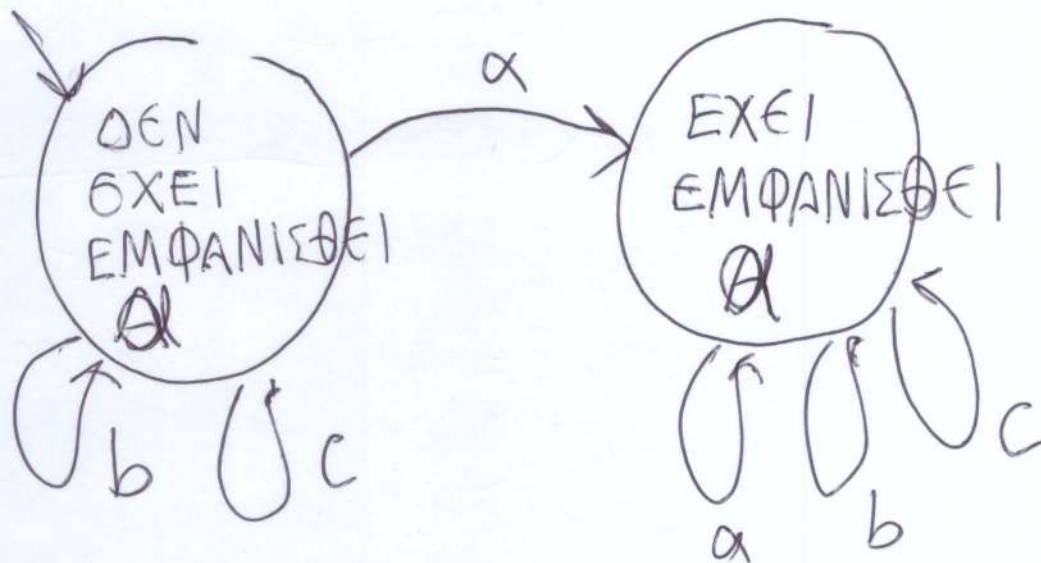 α
ΔΕΝ
ΕΧΕΙ
ΕΜΦΑΝΙΣΘΕΙ
α
b
c
ΕΧΕΙ
ΕΜΦΑΝΙΣΘΕΙ
α
a
b
c